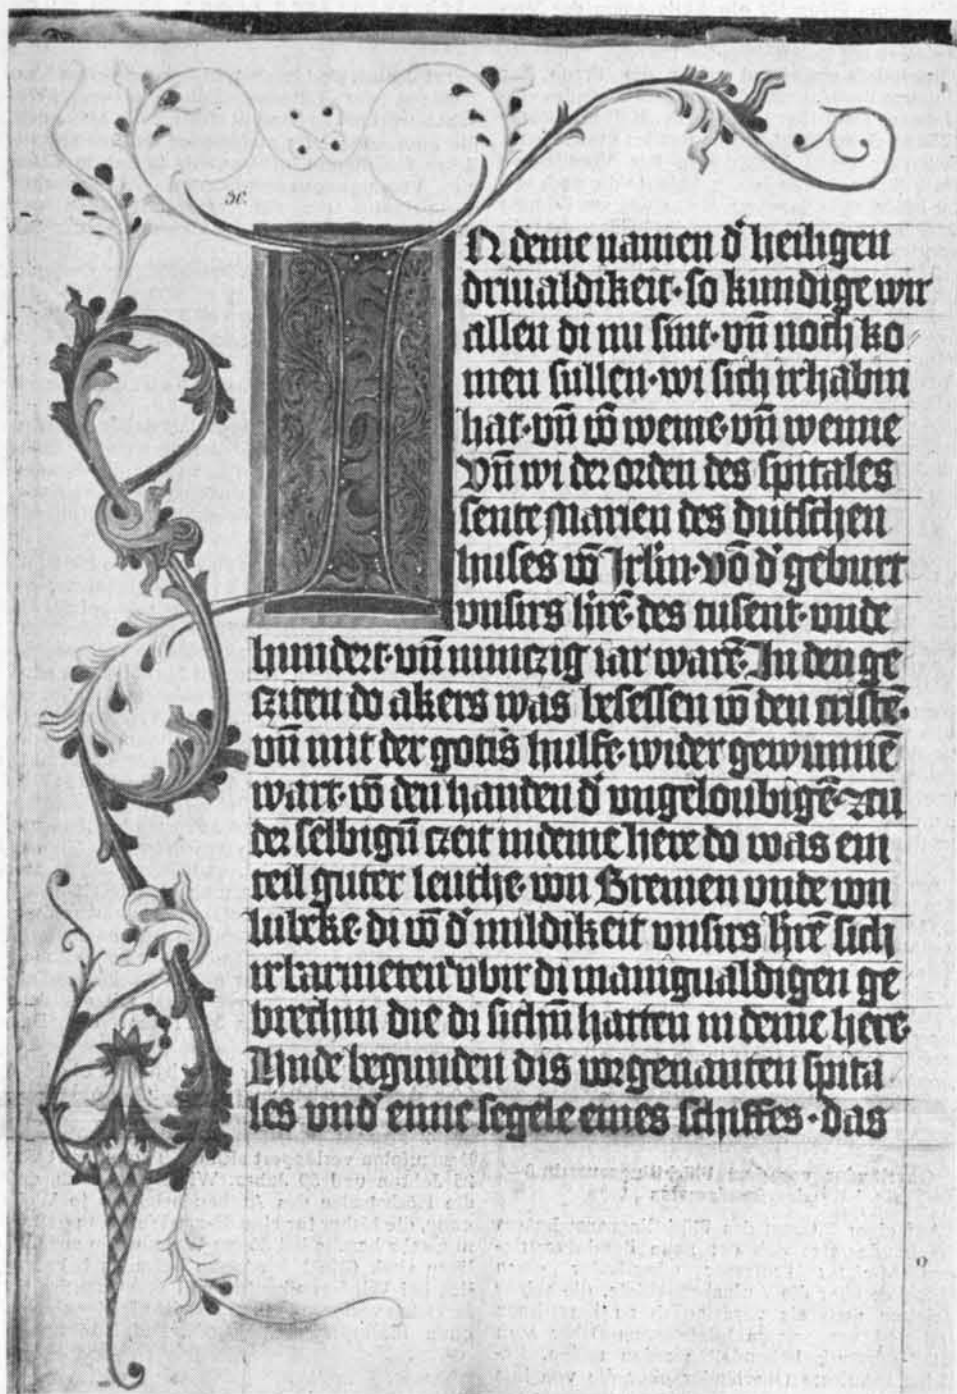 IN deme namen d' heiligen
driualdikeit· so kundige wir
allen di nu sint· vn̄ noch ko〃
men sullen· wi sich irhabin
hat· vn̄ vō weme· vn̄ wenne
Vn̄ wi der orden des spitales
sente Marien des dutschen
huses vō Irlin· vō d' geburt
vnsirs hirē· des tusent· vnde
hundert· vn̄ nunczig iar warē· In den ge
cziten do akers was besessen vō den cristē·
vn̄ mit der gotis hulfe· wider gewunnē
wart· vō den handen d' vngeloubigē· Zcu
der selbigū czeit in deme here do was ein
teil guter leuthe· von Bremen vnde von
lubcke· di vō d' mildikeit vnsirs hirē sich
irbarmeten vbir di manigualdigen ge
brechin die di sichin̄ hatten in deme here·
Vnde begunden dis vorgenanten spita
les vnd' eime segele eines schiffes· das